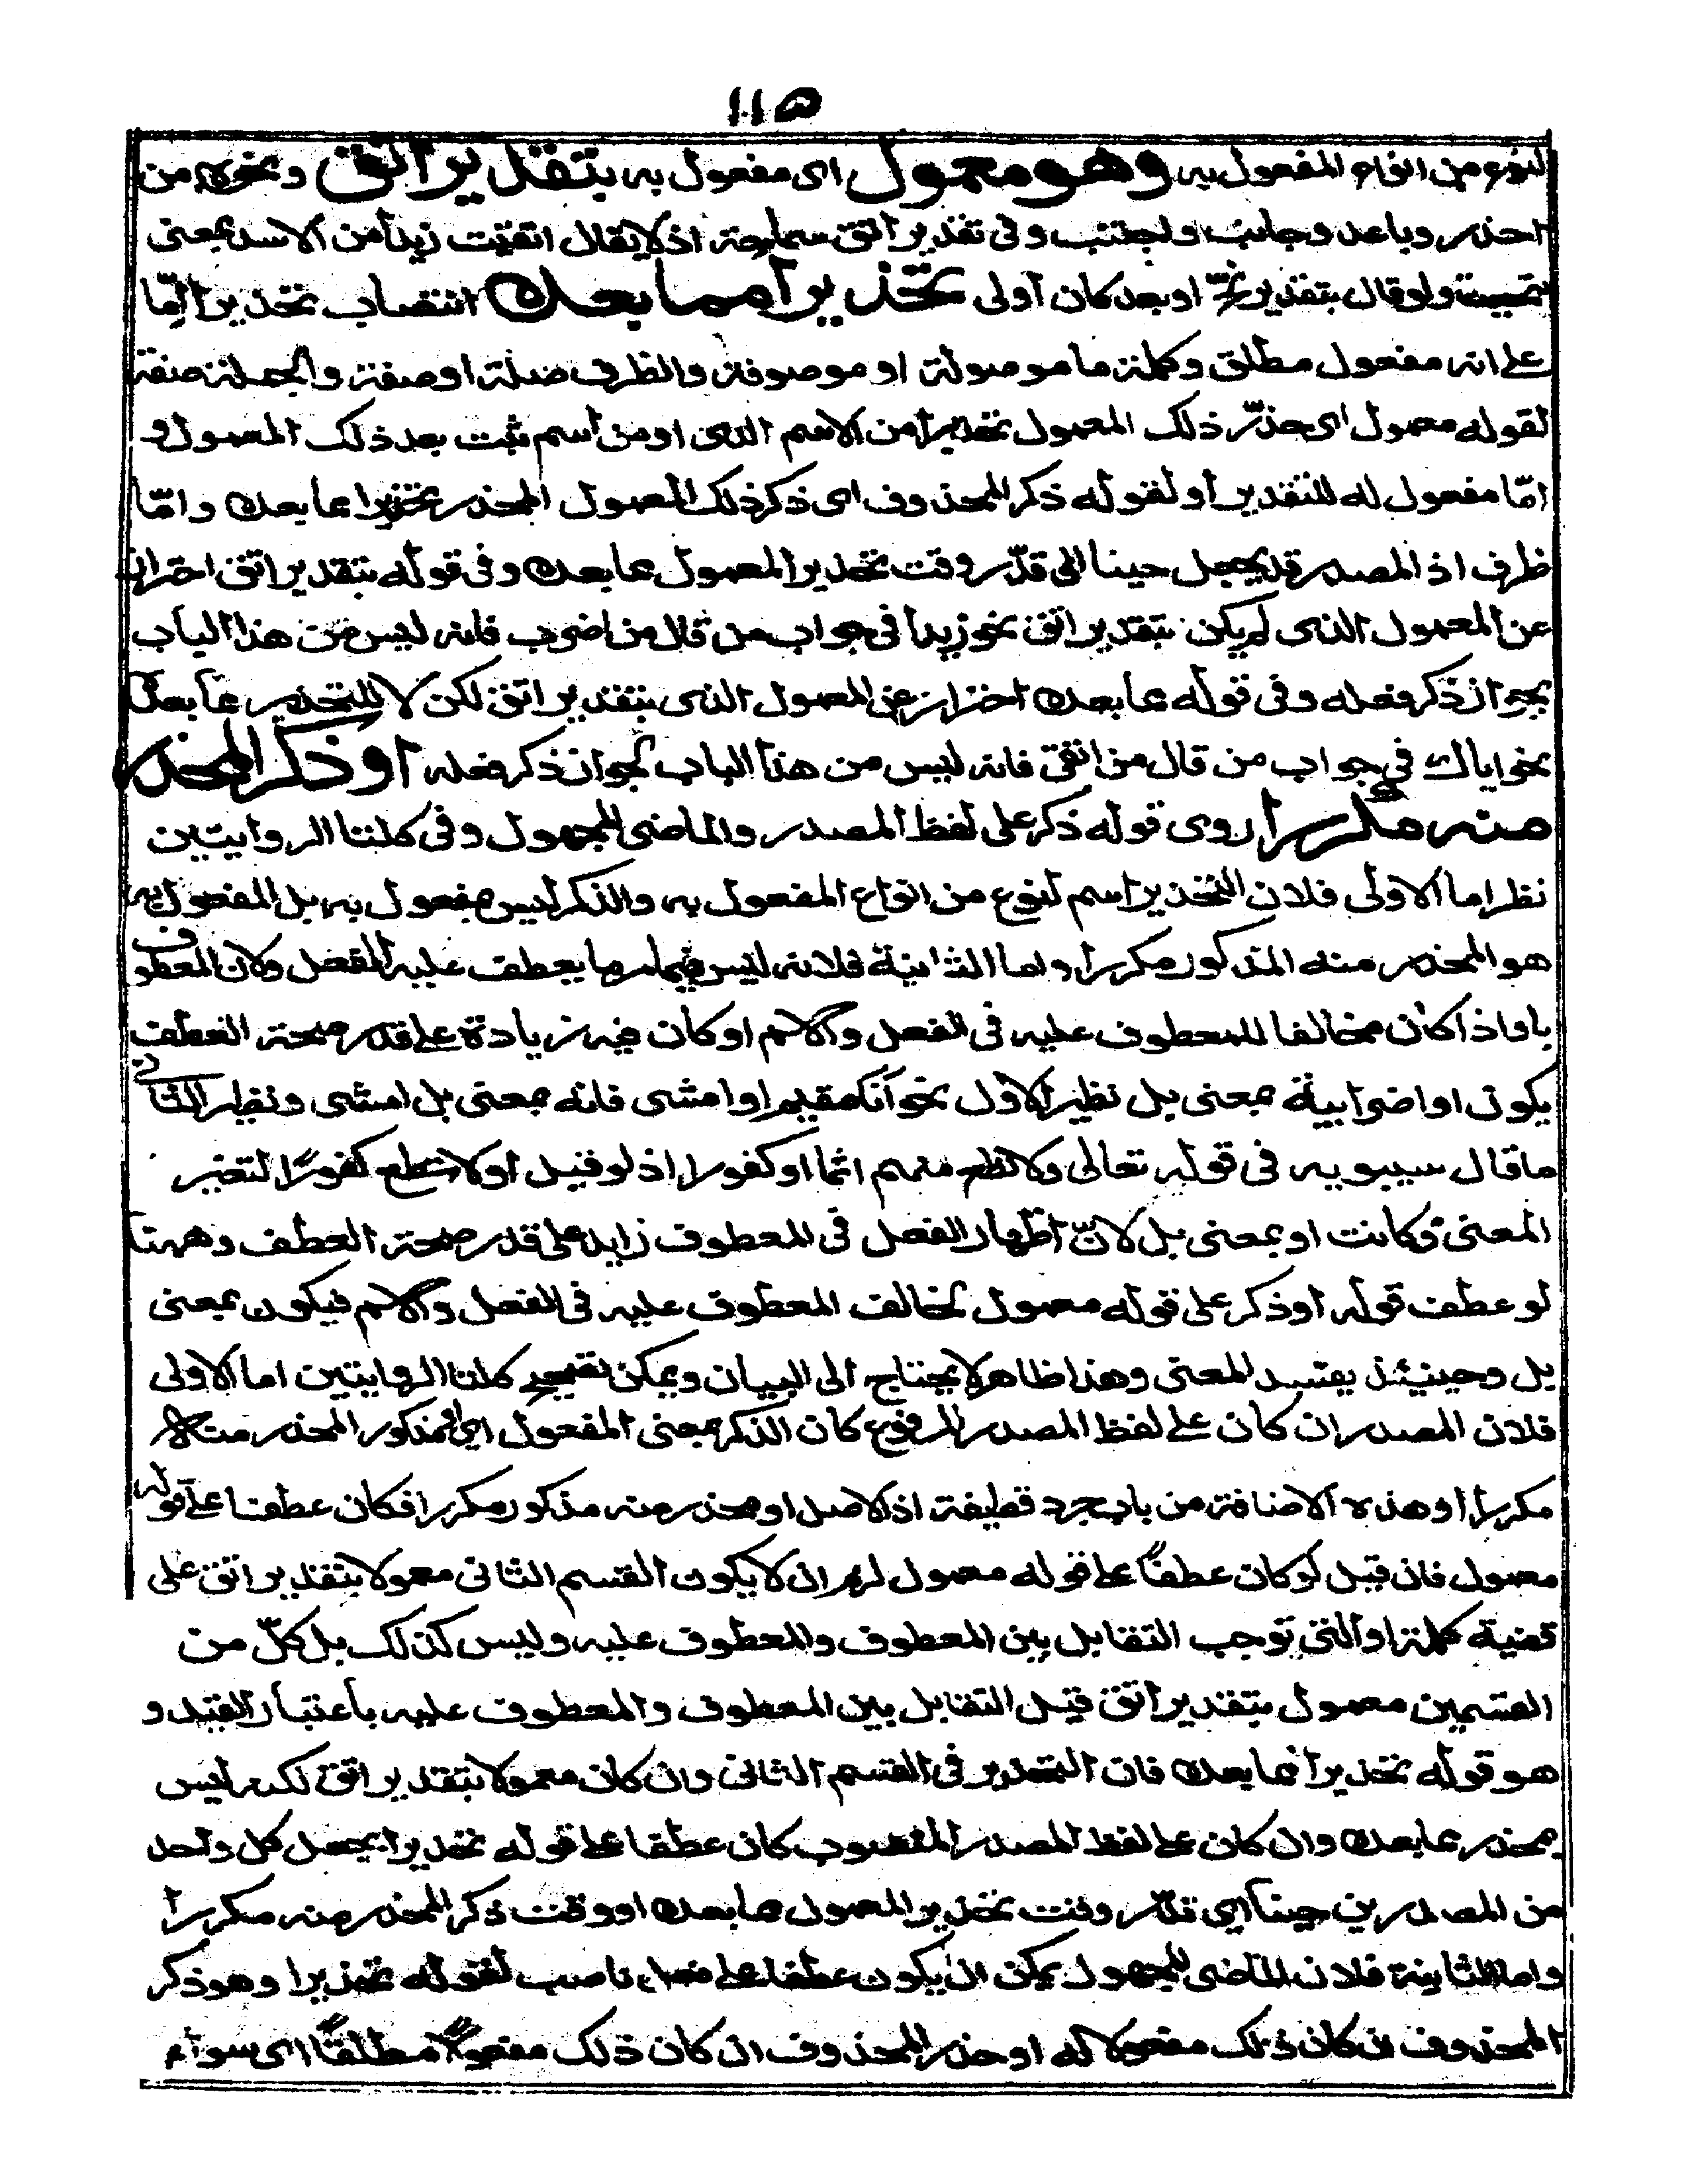 ١١٥
لنوع من انواع المفعول به وهو معمول اى مفعول به بتقدير اتق ونحوه من
احذر وباعد وجانب واجتنب وفى تقدير اتق سماجة اذ لا يقال اتقيت زيدا من الاسد بمعنى
نحيته ولو قال بتقدير نحّ او بعد كان أولى تحذيرا مما بعده انتصاب تحذيرا امّا
على انه مفعول مطلق وكلمة ما موصولة او موصوفة والظرف صلة او صفة والجملة صفة
لقوله معمول اى حذّر ذلك المعمول تحذيرا من الاسم الذى او من اسم ثبت بعد ذلك المعمول و
امّا مفعول له للتقدير أو لقوله ذكر المحذوف اى ذكر ذلك المعمول المحذر تحذيرا مما بعده وامّا
ظرف اذ المصدر قد يجعل حينا اى قدّر وقت تحذير المعمول مما بعده وفى قوله بتقدير اتق احتراز
عن المعمول الذى لم يكن بتقدير اتق نحو زيدا فى جواب من قال من اضرب فانه ليس من هذا الباب
لجواز ذكر فعله وفى قوله مما بعده احتراز عن المعمول الذى بتقدير اتق لكن لا للتحذير مما بعده
نحو اياك فى جواب من قال من اتقى فانه ليس من هذا الباب لجواز ذكر فعله او ذكر المحذر
منه مكررا روى قوله ذكر على لفظ المصدر والماضى المجهول وفى كلتا الروايتين
نظر اما الاولى فلان التحذير اسم لنوع من انواع المفعول به والذكر ليس بمفعول به بل المفعول به
هو المحذر منه المذكور مكررا واما الثانية فلانه ليس فيما مر ما يعطف عليه الفعل ولان المعطوف
باو اذا كان مخالفا للمعطوف عليه فى الفعل والاسم او كان فيه زيادة على قدر صحة العطف
يكون او اضرابية بمعنى بل نظير الاول نحو أنا مقيم او امشى فانه بمعنى بل امشى ونظير الثانى
ما قال سيبويه فى قوله تعالى ولا تطع منهم اثما او كفورا اذ لو قيل او لا تطع كفورًا لتغير
المعنى وكانت او بمعنى بل لانّ اظهار الفعل فى المعطوف زايد على قدر صحة العطف وههنا
لو عطف قوله او ذكر على قوله معمول لخالف المعطوف عليه فى الفعل والاسم فيكون بمعنى
بل وحينئذ يفسد المعنى وهذا ظاهر لا يحتاج الى البيان ويمكن تصحيح كلتا الروايتين اما الاولى
فلان المصدر ان كان على لفظ المصدر المرفوع كان الذكر بمعنى المفعول اى او مذكور المحذر منه
مكررا وهذه الاضافة من باب جرد قطيفة اذ الاصل او محذر منه مذكور مكررا فكان عطفا على قوله
معمول فان قيل لو كان عطفًا على قوله معمول لزم ان لا يكون القسم الثانى معمولا بتقدير اتق على
قضية كلمة او التى توجب التقابل بين المعطوف والمعطوف عليه وليس كذلك بل كلّ من
القسمين معمول بتقدير اتق قيل التقابل بين المعطوف والمعطوف عليه باعتبار القيد و
هو قوله تحذيرا مما بعده فان التحذير فى القسم الثانى وان كان معمولا بتقدير اتق لكنه ليس
بمحذر مما بعده وان كان على لفظ المصدر المنصوب كان عطفا على قوله تحذيرا بجعل كل واحد
من المصدرين حينا اى قدّر وقت تحذير المعمول مما بعده او وقت ذكر المحذر منه مكررا
واما الثانية فلان الماضى المجهول يمكن ان يكون عطفا على ناصب لقوله تحذيرا وهو ذكر
المحذوف ان كان ذلك مفعولا له او حذر المحذوف ان كان ذلك مفعولًا مطلقًا اى سواء